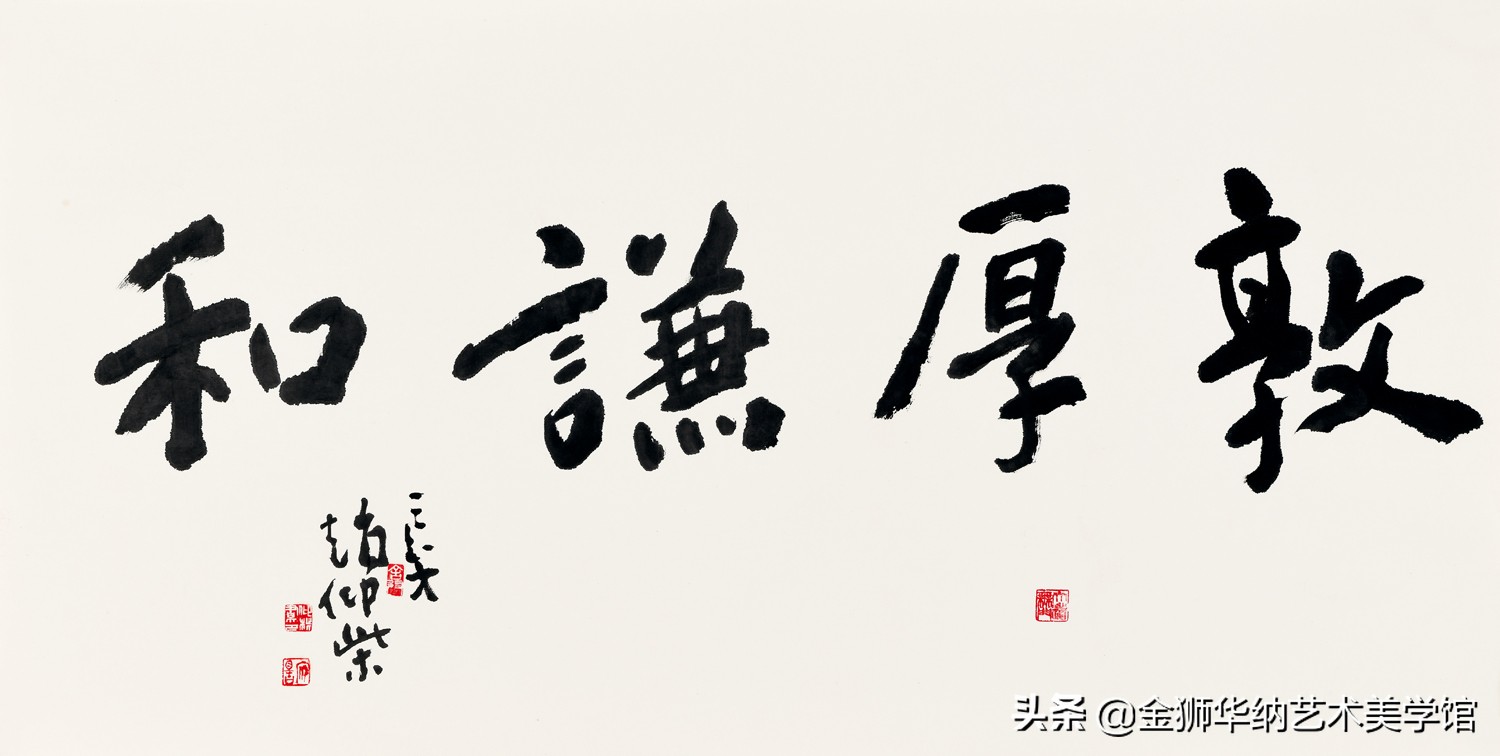 敦厚謙和
趙仰柴
头条 @金狮华纳艺术美学馆